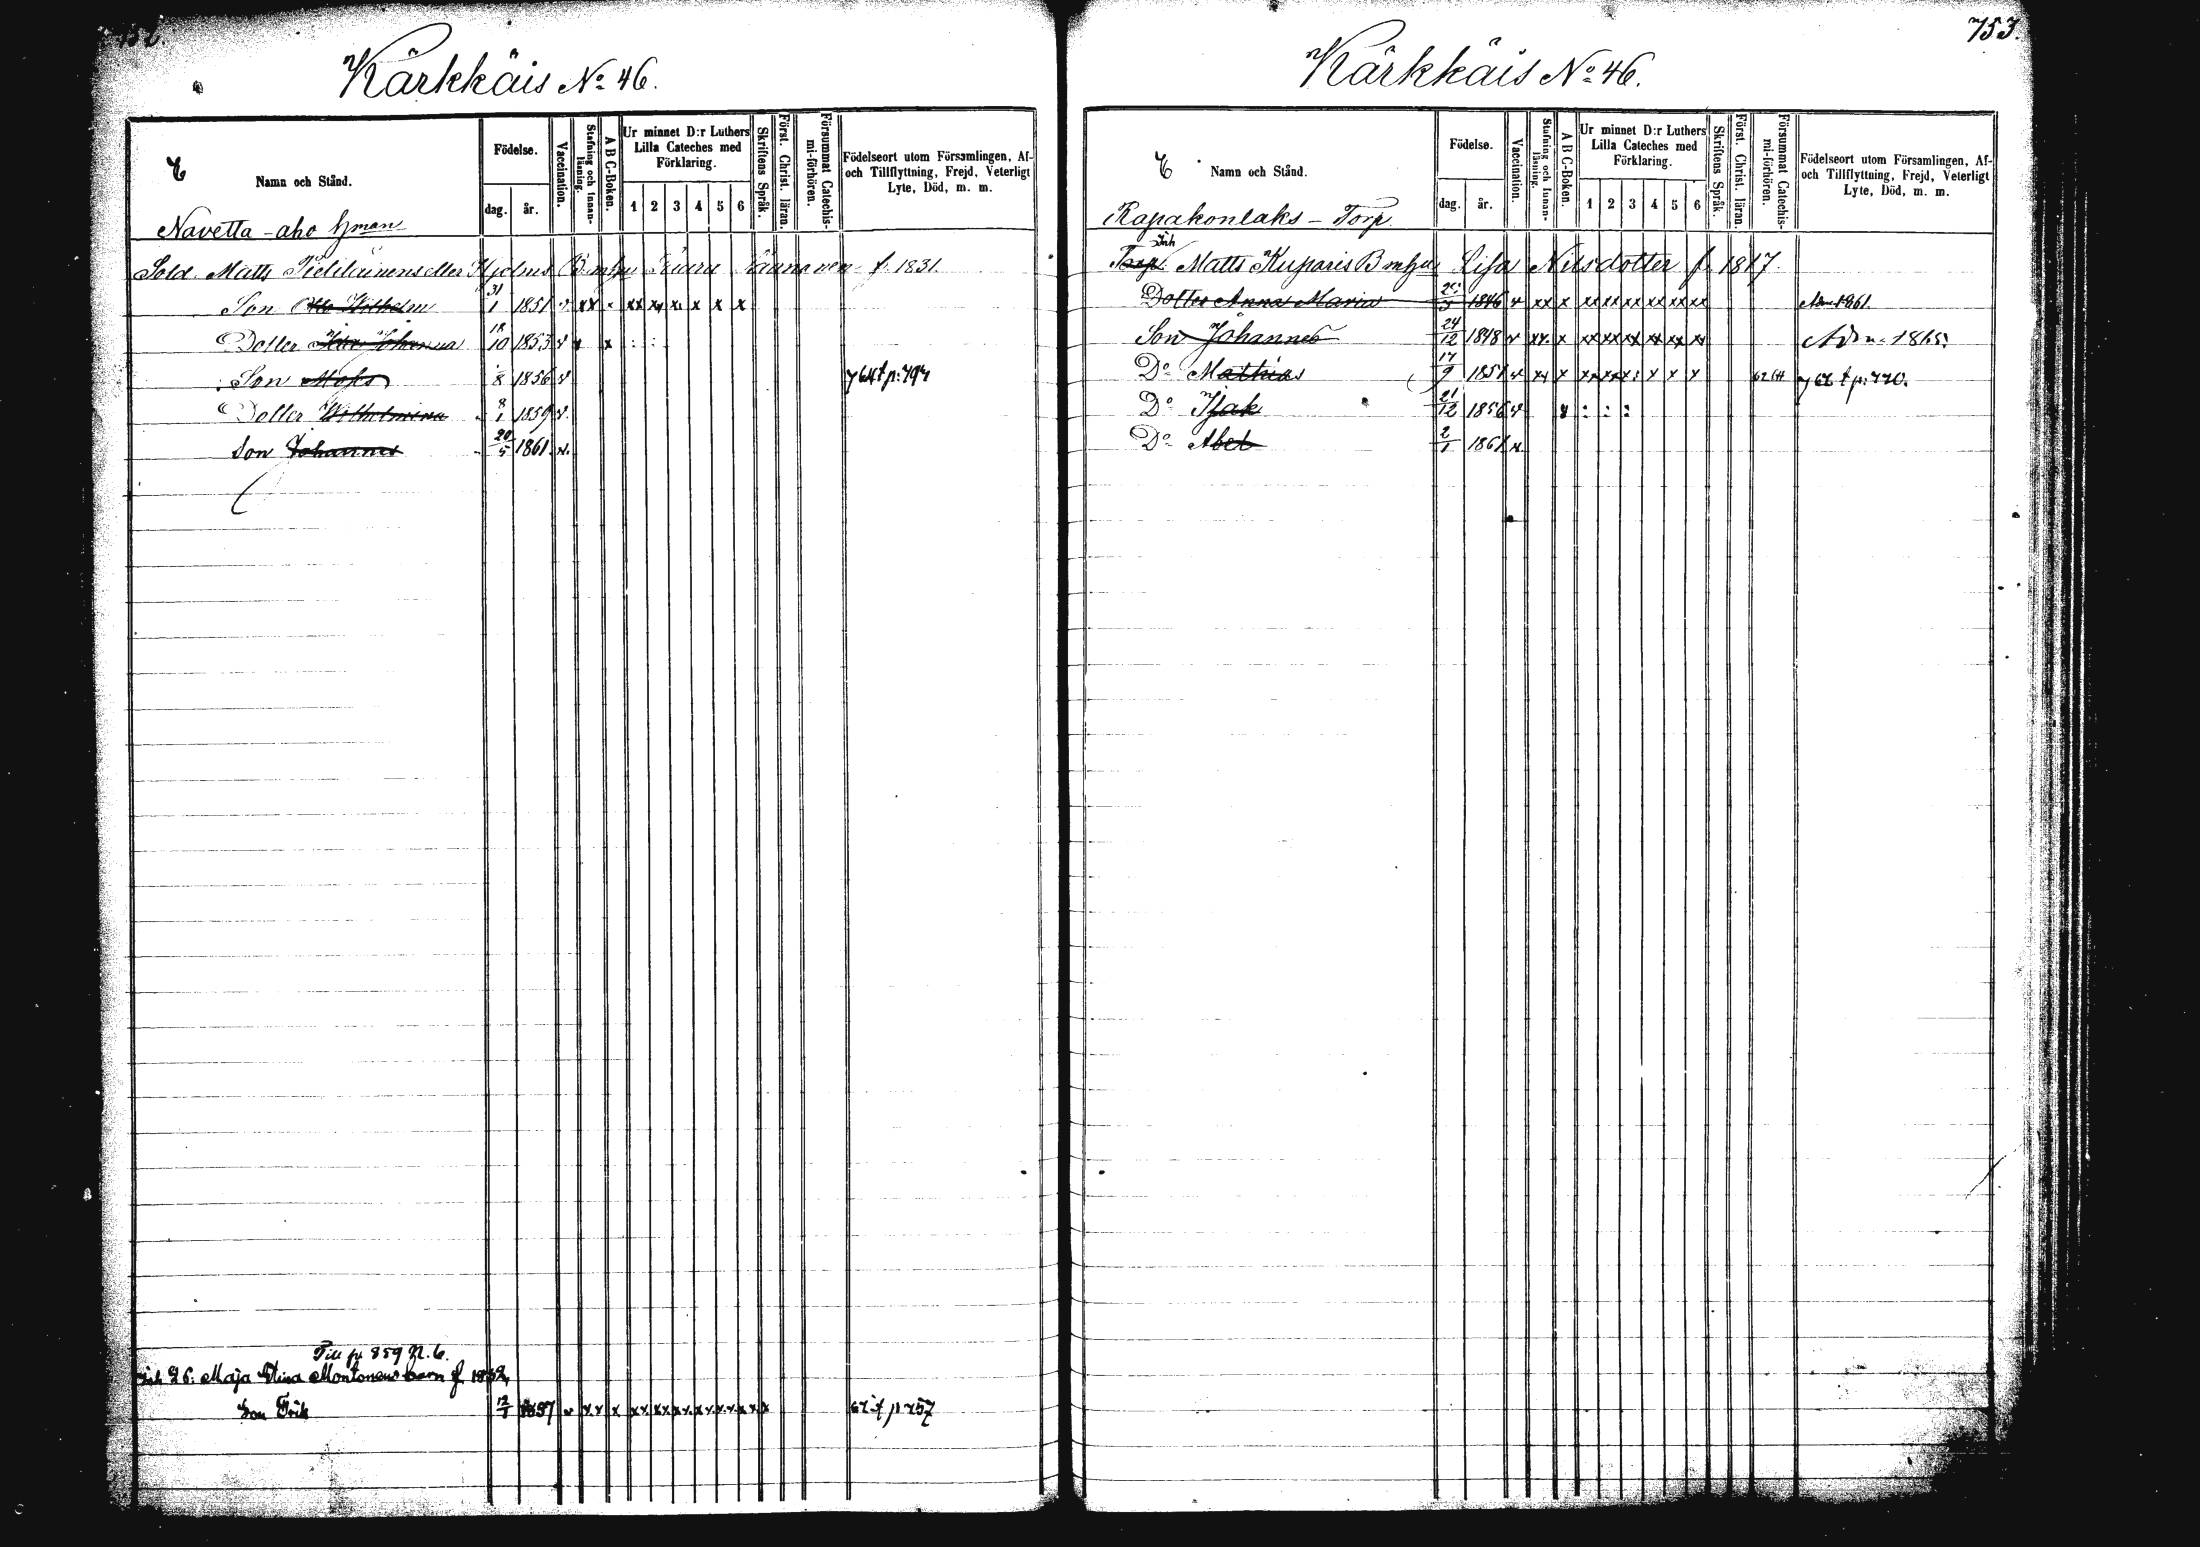 Kärkkäis No 46.
Namn och Stånd.
Födelse.
dag.
år.
Vaccination.
Stafning och Innanläsning.
A B C-Boken.
Ur minnet D:r Luthers Lilla Cateches med Förklaring.
1 2 3 4 5 6
Skriftens Språk.
Först. Christ. läran.
Försummat Catechismi-förhören.
Födelseort utom Församlingen, Af-
och Tillflyttning, Frejd, Veterligt
Lyte, Död, m. m.
Navetta-aho
Sold. Matts eller Hjelms f. 1831.
Son Otto Wilhelm 31 1 1851 v xx x x x x
Dotter 18 10 1853 v x x : :
Son Moses 8 1856 v
Dotter Wilhelmina 8 1 1859 v.
Son Johannes 20/5 1861. v.
Till p 859 N. 6.
Maja Stina Montonens barn f
Son Erik 12 1857 v x.v x
62 t p 757
753.
Kärkkäis No 46.
Namn och Stånd.
Födelse.
dag.
år.
Vaccination.
Stafning och Innanläsning.
A B C-Boken.
Ur minnet D:r Luthers
Lilla Cateches med
Förklaring.
1 2 3 4 5 6
Skriftens Språk.
Först. Christ. läran.
Försummat Catechismi-förhören.
Födelseort utom Församlingen, Af-
och Tillflyttning, Frejd, Veterligt
Lyte, Död, m. m.
Rapakonlaks - Torp.
Inh
Torp. Matts Kuparis B m hu Lisa Nilsdotter f. 1817.
Dotter Anna Maria 1846 v xx x xx xx xx xx xx xx 1861.
Son Johannes 24/12 1848 v xx. x xx xx xx xx xx xx Adm. 1865.
Do Mathias 17/9 1851 v xx x x x x 62 64 p. 770.
Do Isak 21/12 1856 v x : : :
Do Abel 2/1 1861 v.